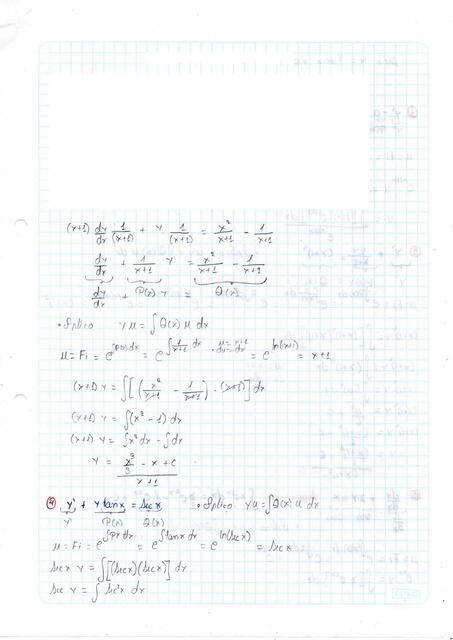 (x+1) dy/dx 1/(x+1) + y 1/(x+1) = x²/(x+1) - 1/(x+1)
dy/dx + 1/(x+1) y = x²/(x+1) - 1/(x+1)
dy/dx + P(x) y = Q(x)
• Aplico yμ = ∫Q(x) μ dx
μ = Fi = e^∫p(x)dx = e^∫1/(x+1) dx • μ=x+1 dμ=dx = e^ln(x+1) = x+1
(x+1) y = ∫[(x²/(x+1) - 1/(x+1)) · (x+1)] dx
(x+1) y = ∫(x² - 1) dx
(x+1) y = ∫x² dx - ∫dx
y = (x³/3 - x + c)/(x+1)
④ y' + y tan x = sec x • Aplico yμ = ∫Q(x) μ dx
y' P(x) Q(x)
μ = Fi = e^∫Px dx = e^∫tan x dx = e^ln(sec x) = sec x
sec x y = ∫[(sec x)(sec x)] dx
sec y = ∫ sec²x dx